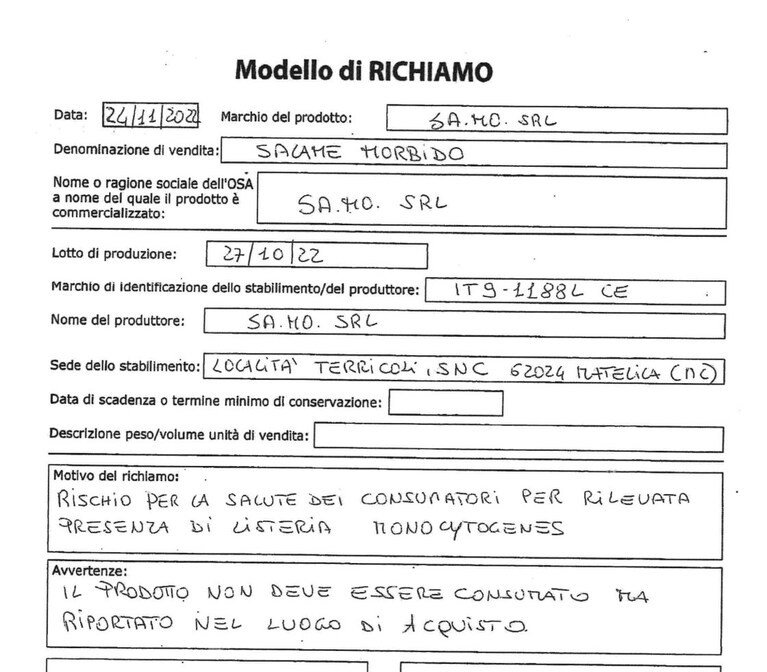 Modello di RICHIAMO
Data: 24/11/2022 Marchio del prodotto: SA.MO. SRL
Denominazione di vendita: SALAME MORBIDO
Nome o ragione sociale dell'OSA
a nome del quale il prodotto è
commercializzato: SA.MO. SRL
Lotto di produzione: 27/10/22
Marchio di identificazione dello stabilimento/del produttore: IT 9-1188L CE
Nome del produttore: SA.MO. SRL
Sede dello stabilimento: LOCALITA' TERRICOLI, SNC 62024 MATELICA (MC)
Data di scadenza o termine minimo di conservazione:
Descrizione peso/volume unità di vendita:
Motivo del richiamo:
RISCHIO PER LA SALUTE DEI CONSUMATORI PER RILEVATA
PRESENZA DI LISTERIA MONOCYTOGENES
Avvertenze:
IL PRODOTTO NON DEVE ESSERE CONSUMATO MA
RIPORTATO NEL LUOGO DI ACQUISTO.